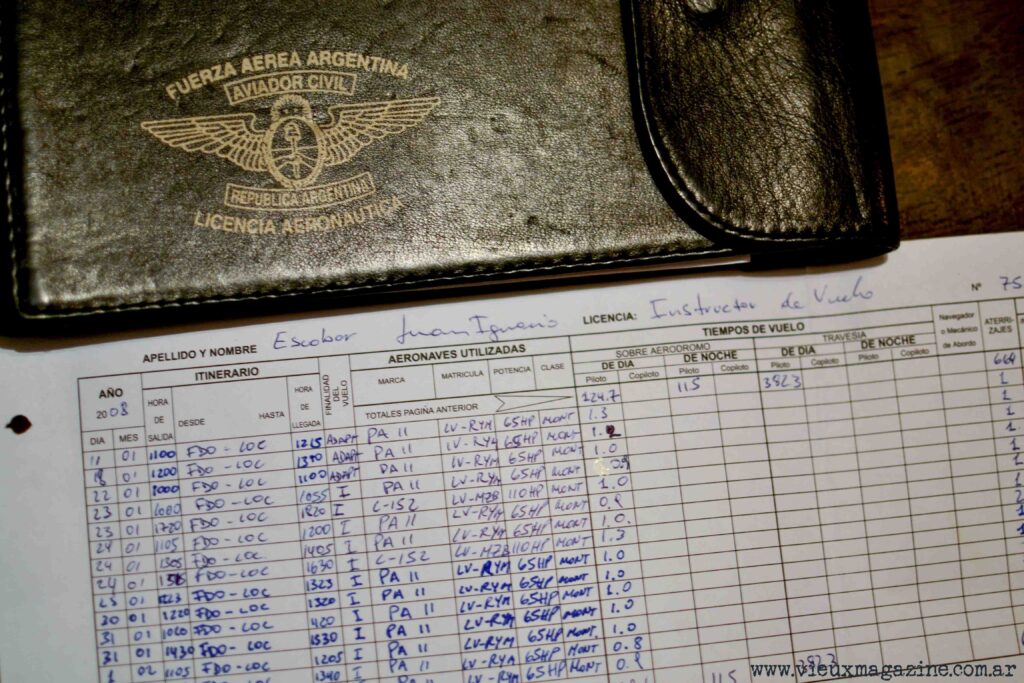 FUERZA AEREA ARGENTINA
AVIADOR CIVIL
REPUBLICA ARGENTINA
LICENCIA AERONAUTICA
APELLIDO Y NOMBRE Escobar Juan Ignacio LICENCIA: Instructor de Vuelo Nº 75
AÑO 2008 ITINERARIO FINALIDAD DEL VUELO AERONAVES UTILIZADAS TIEMPOS DE VUELO Navegador o Mecánico de Abordo ATERRIZAJES
SOBRE AERODROMO TRAVESIA
DE DIA DE NOCHE DE DIA DE NOCHE
HORA DE SALIDA DESDE HASTA HORA DE LLEGADA MARCA MATRICULA POTENCIA CLASE Piloto Copiloto Piloto Copiloto Piloto Copiloto Piloto Copiloto
DIA MES TOTALES PAGIÑA ANTERIOR 124.7 115 382.3 664
11 01 1100 FDO - LOC 1215 ADAPT PA 11 LV-RYM 65HP MONT 1.3 1
01 1200 FDO - LOC ADAPT PA 11 LV-RYM 65HP MONT 1
22 01 1000 FDO - LOC 1100 ADAPT PA 11 LV-RYM 65HP MONT 1.0 1
23 01 FDO - LOC 1055 I PA 11 LV-RYM 65HP MONT
23 01 FDO - LOC I C-152 LV-MZB 110HP MONT 1.0
24 01 1105 FDO - LOC 1200 I PA 11 LV-RYM 65HP MONT
24 01 1305 FDO - LOC 1405 I PA 11 LV-RYM 65HP MONT 1.0
24 01 FDO - LOC 1630 I C-152 LV-MZB 110HP MONT 1.3
01 FDO - LOC 1323 I PA 11 LV-RYM 65HP MONT 1.0
30 01 1220 FDO - LOC 1320 I PA 11 LV-RYM 65HP MONT 1.0
31 01 FDO - LOC I PA 11 LV-RYM 65HP MONT 1.0
31 01 1430 FDO - LOC 1530 I PA 11 LV-RYM 65HP MONT 1.0
1 02 1105 FDO - LOC 1205 I PA 11 LV-RYM 65HP MONT
www.vieuxmagazine.com.ar